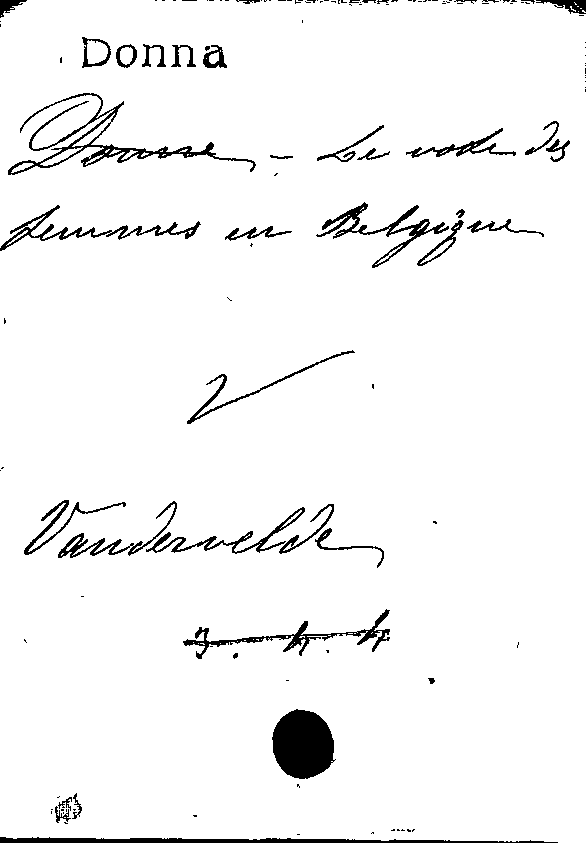 Donna
Donne - Le vote des
femmes en Belgique
V
Vandervelde
3. 4. 4